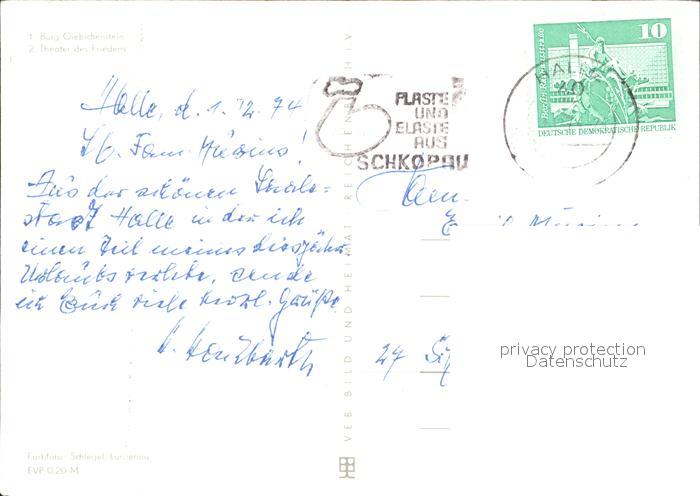 1. Burg Giebichenstein
2. Theater des Friedens
Halle, d. 1.12.74
Lb. Fam.
Aus der schönen Saale=
stadt Halle in der ich
einen Teil meines diesjähr.
Urlaubs verlebe, sende
ich Euch viele herzl. Grüße
PLASTE
UND
ELASTE
AUS
SCHKOPAU
HALLE
10
Berlin, Rathausstraße
DEUTSCHE DEMOKRATISCHE REPUBLIK
Fam.
27
privacy protection
Datenschutz
VEB BILD UND HEIMAT REICHENBACH I.V.
Farbfoto: Schlegel,
EVP 0,20 M